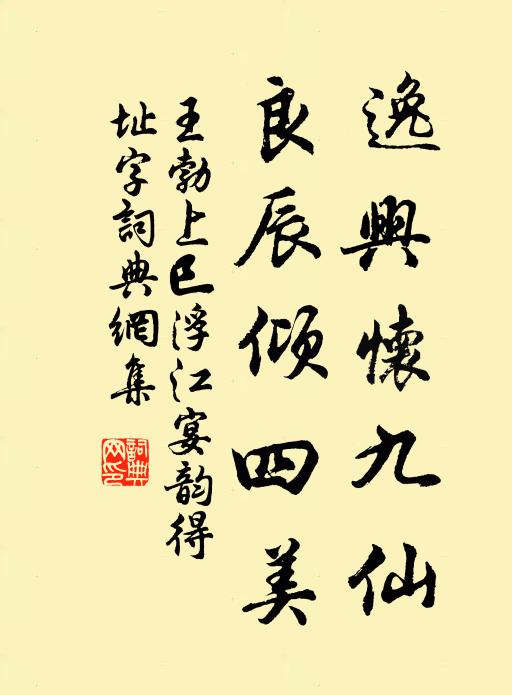 逸興懷九仙
良辰傾四美
王勃上巳浮江宴韵得
址字詞典網集
詞典
网印